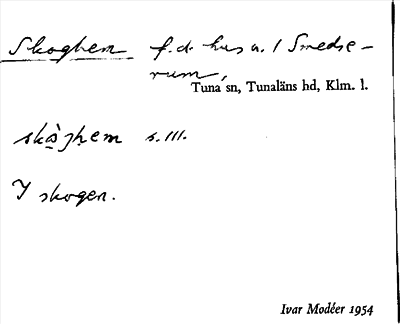 Skoghem f.d. hus u. / Smedse-
rum,
Tuna sn, Tunaläns hd, Klm. l.
s. III.
I skogen.
Ivar Modéer 1954